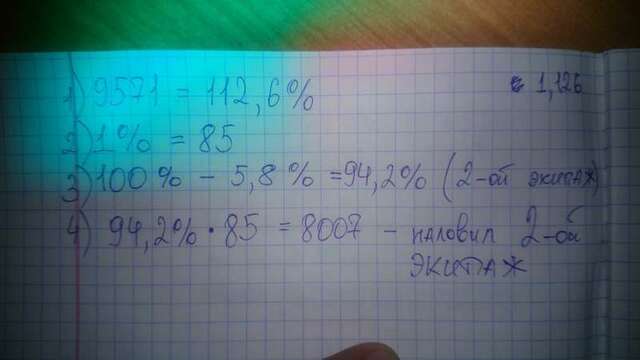 1) 9571 = 112,6%
1,126
2) 1% = 85
3) 100% - 5,8% = 94,2% (2-ой экипаж)
4) 94,2% · 85 = 8007 - наловил 2-ой
экипаж